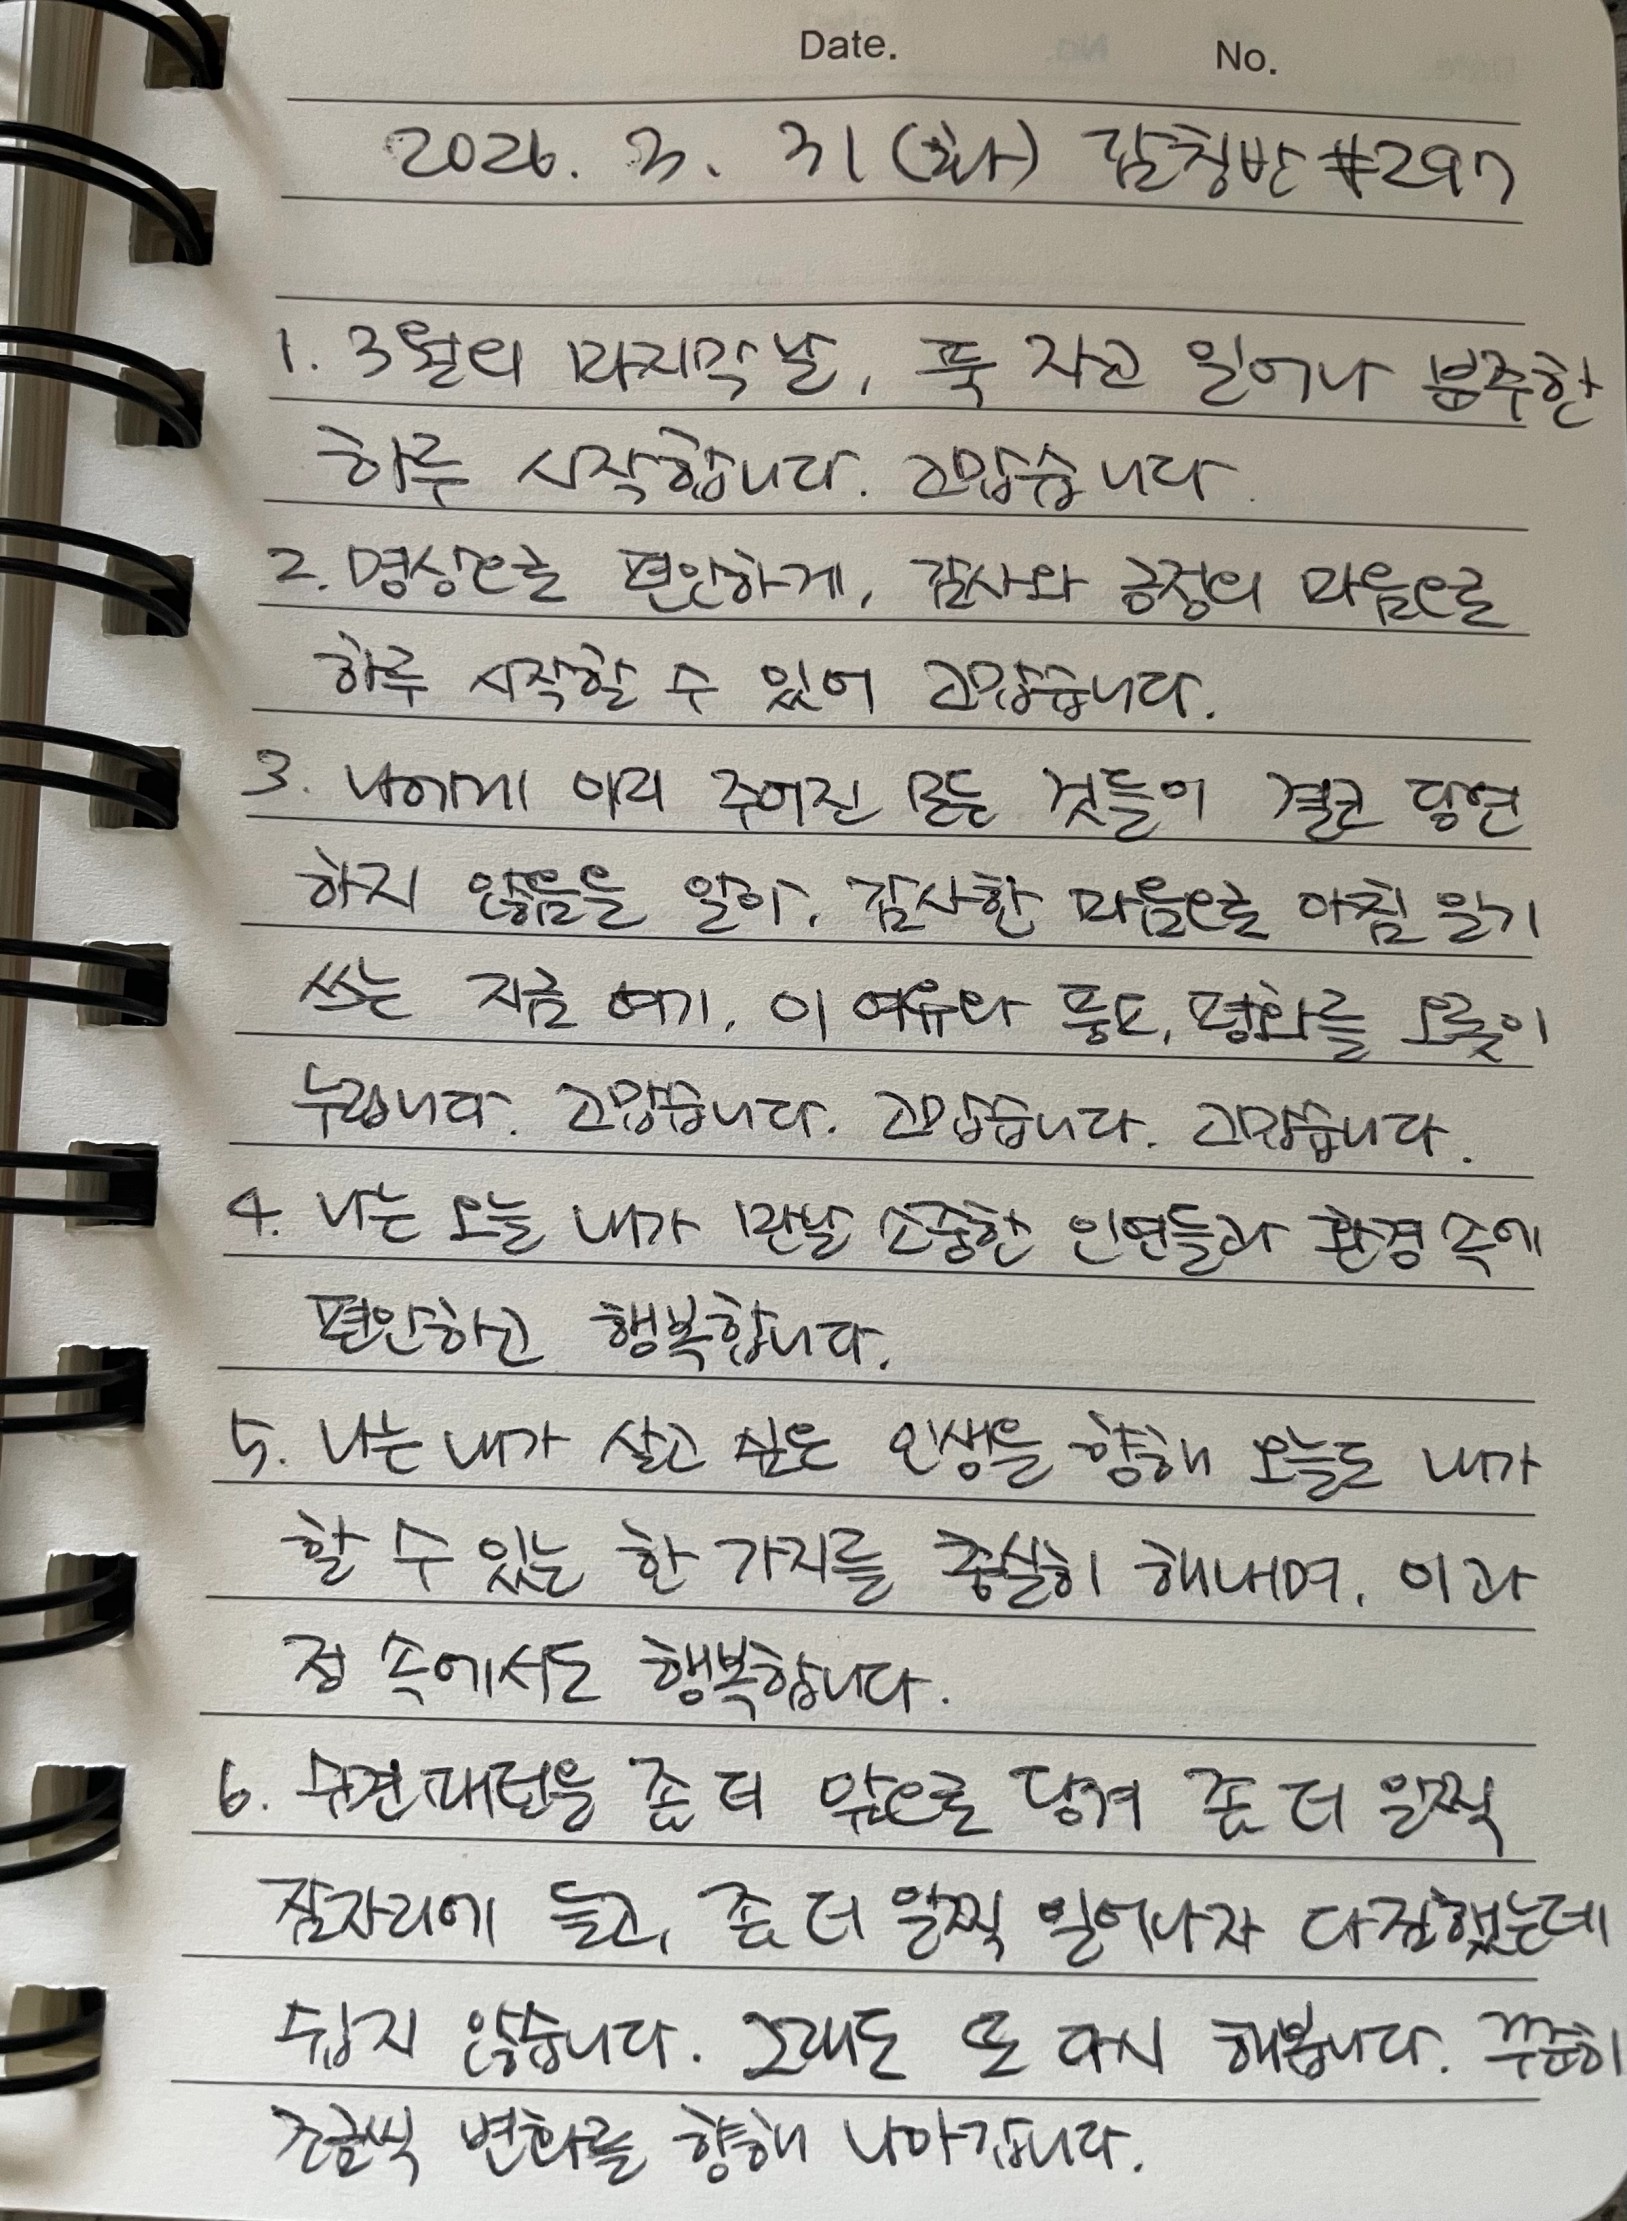 Date. No.
2026. 3. 31 (화) 감칭반 #297
1. 3월의 마지막 날, 푹 자고 일어나 분주한
하루 시작합니다. 고맙습니다.
2. 명상으로 편안하게, 감사와 긍정의 마음으로
하루 시작할 수 있어 고맙습니다.
3. 나에게 이미 주어진 모든 것들이 결코 당연
하지 않음을 알아, 감사한 마음으로 아침 일기
쓰는 지금 여기, 이 여유와 풍요, 평화를 오롯이
누립니다. 고맙습니다. 고맙습니다. 고맙습니다.
4. 나는 오늘 내가 만날 소중한 인연들과 환경 속에
편안하고 행복합니다.
5. 나는 내가 살고 싶은 인생을 향해 오늘도 내가
할 수 있는 한 가지를 충실히 해내며, 이 과
정 속에서도 행복합니다.
6. 수면패턴을 좀 더 앞으로 당겨 좀 더 일찍
잠자리에 들고, 좀 더 일찍 일어나자 다짐했는데
쉽지 않습니다. 그래도 또 다시 해봅니다. 꾸준히
조금씩 변화를 향해 나아갑니다.